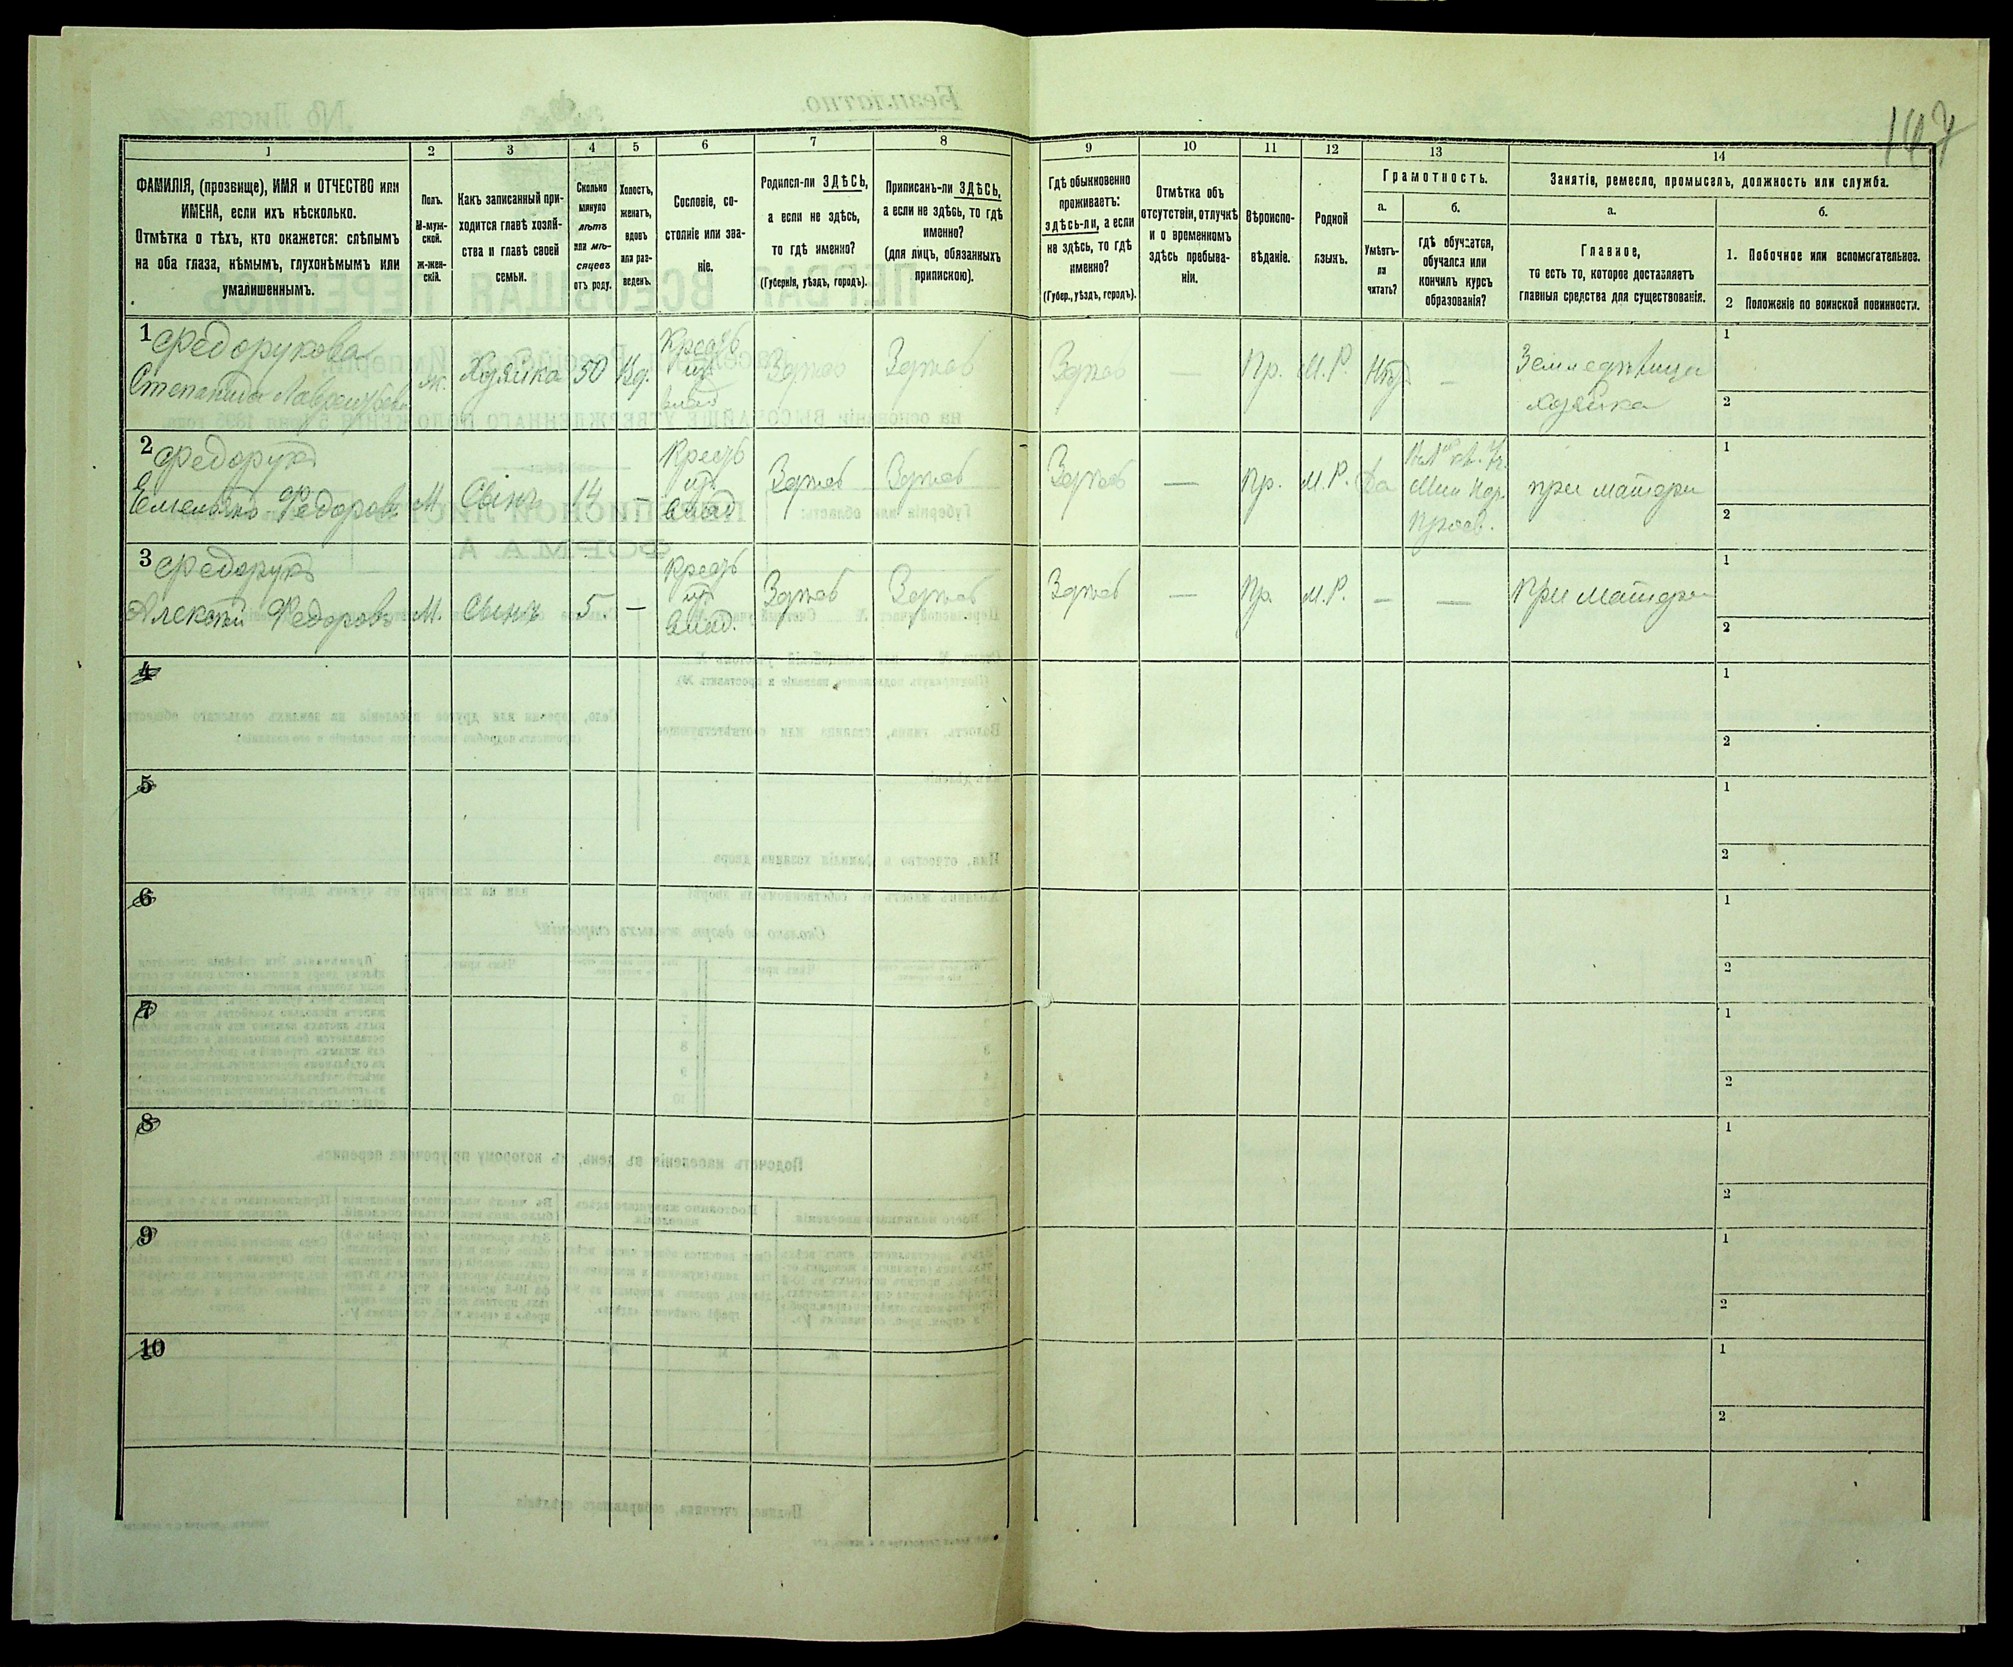 167
1 2 3 4 5 6 7 8 9 10 11 12 13 14
ФАМИЛІЯ, (прозвище), ИМЯ и ОТЧЕСТВО или
ИМЕНА, если ихъ нѣсколько.
Отмѣтка о тѣхъ, кто окажется: слѣпымъ
на оба глаза, нѣмымъ, глухонѣмымъ или
умалишеннымъ.
Полъ.
М-муж-
ской.
Ж-жен-
скій.
Какъ записанный при-
ходится главѣ хозяй-
ства и главѣ своей
семьи.
Сколько
минуло
лѣтъ
или мѣ-
сяцевъ
отъ роду.
Холостъ,
женатъ,
вдовъ
или раз-
веденъ.
Сословіе, со-
стояніе или зва-
ніе.
Родился-ли ЗДѢСЬ,
а если не здѣсь,
то гдѣ именно?
(Губернія, уѣздъ, городъ).
Приписанъ-ли ЗДѢСЬ,
а если не здѣсь, то гдѣ
именно?
(для лицъ, обязанныхъ
припискою).
Гдѣ обыкновенно
проживаетъ:
здѣсь-ли, а если
не здѣсь, то гдѣ
именно?
(Губер., уѣздъ, городъ).
Отмѣтка объ
отсутствіи, отлучкѣ
и о временномъ
здѣсь пребыва-
ніи.
Вѣроиспо-
вѣданіе.
Родной
языкъ.
Грамотность.
а.
Умѣетъ-
ли
читать?
б.
гдѣ обучается,
обучался или
кончилъ курсъ
образованія?
Занятія, ремесло, промыселъ, должность или служба.
а.
Главное,
то есть то, которое доставляетъ
главныя средства для существованія.
б.
1. Побочное или вспомогательное.
2 Положеніе по воинской повинности.
1 Федорукова
Степанида Лаврентьева
ж. Хозяйка 50 Вд.
Крест
изъ
влад
Здесь Здесь Здесь — Пр. М.Р. Нѣт —
Земледѣлица
хозяйка
1
2
2 Федорукъ
Емельянъ Федоровъ М Сынъ 14 —
Крест
изъ
влад
Здесь Здесь Здесь — Пр. М.Р. Да
Мин Нар.
Просв.
при матери
1
2
3 Федорукъ
Алексѣй Федоровъ М. Сынъ 5 —
Крест
изъ
влад.
Здесь Здесь Здесь — Пр. М.Р. — — При матери
1
2
4
1
2
5
1
2
6
1
2
7
1
2
8
1
2
9
1
2
10
1
2